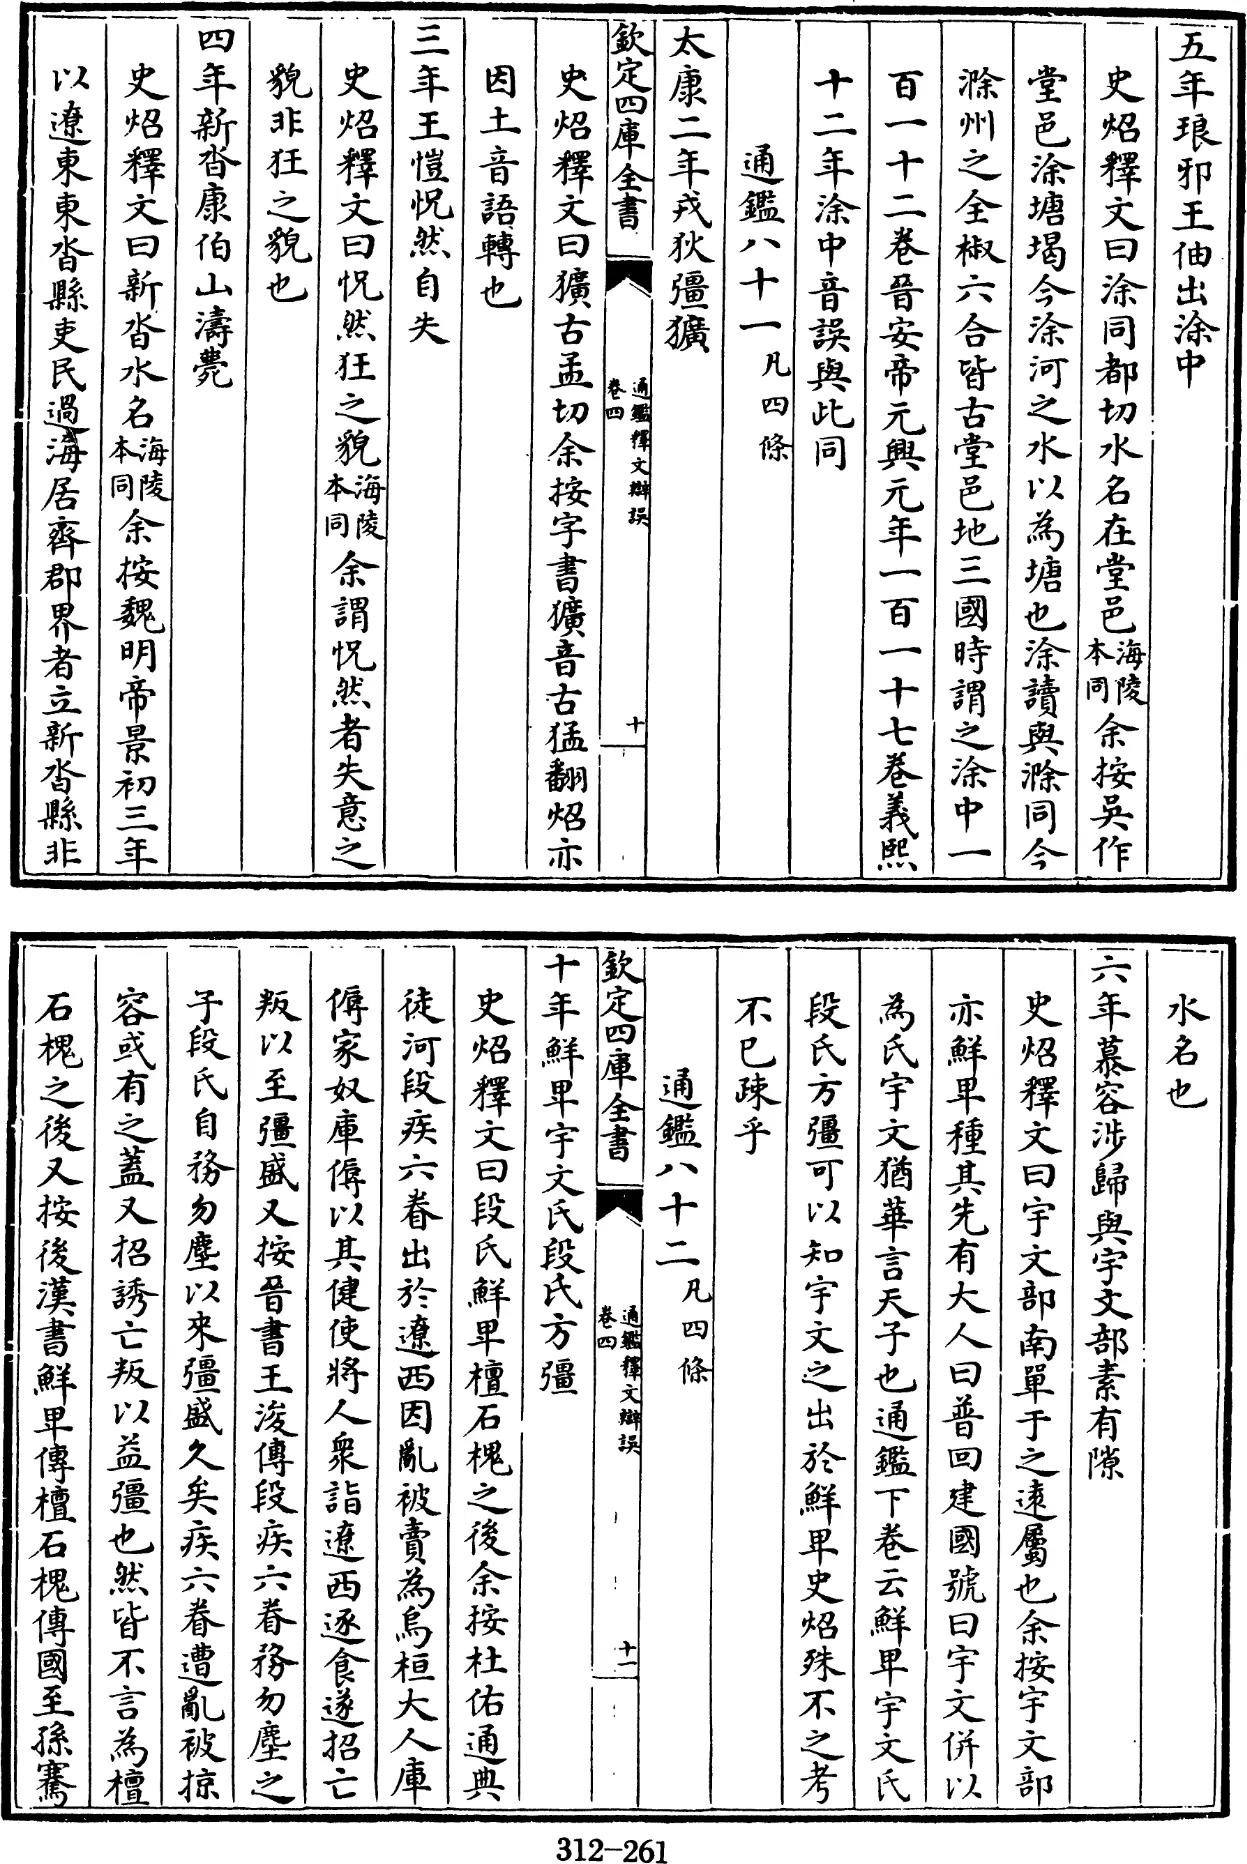 五年琅邪王伷出涂中
史炤釋文曰涂同都切水名在堂邑海陵本同余按吳作
堂邑涂塘堨今涂河之水以為塘也涂讀與滁同今
滁州之全椒六合皆古堂邑地三國時謂之涂中一
百一十二卷晉安帝元興元年一百一十七卷義熙
十二年涂中音誤與此同
通鑑八十一凡四條
太康二年戎狄彊獷
欽定四庫全書
通鑑釋文辯誤
卷四
十
史炤釋文曰獷古孟切余按字書獷音古猛翻炤亦
因土音語轉也
三年王愷怳然自失
史炤釋文曰怳然狂之貌海陵本同余謂怳然者失意之
貌非狂之貌也
四年新沓康伯山濤薨
史炤釋文曰新沓水名海陵本同余按魏明帝景初三年
以遼東東沓縣吏民過海居齊郡界者立新沓縣非
水名也
六年慕容涉歸與宇文部素有隙
史炤釋文曰宇文部南單于之遠屬也余按宇文部
亦鮮卑種其先有大人曰普回建國號曰宇文併以
為氏宇文猶華言天子也通鑑下卷云鮮卑宇文氏
段氏方彊可以知宇文之出於鮮卑史炤殊不之考
不已疎乎
通鑑八十二凡四條
欽定四庫全書
通鑑釋文辯誤
卷四
十一
十年鮮卑宇文氏段氏方彊
史炤釋文曰段氏鮮卑檀石槐之後余按杜佑通典
徒河段疾六眷出於遼西因亂被賣為烏桓大人庫
傉家奴庫傉以其健使將人衆詣遼西逐食遂招亡
叛以至彊盛又按晉書王浚傳段疾六眷務勿塵之
子段氏自務勿塵以來彊盛久矣疾六眷遭亂被掠
容或有之蓋又招誘亡叛以益彊也然皆不言為檀
石槐之後又按後漢書鮮卑傳檀石槐傳國至孫騫
312-261